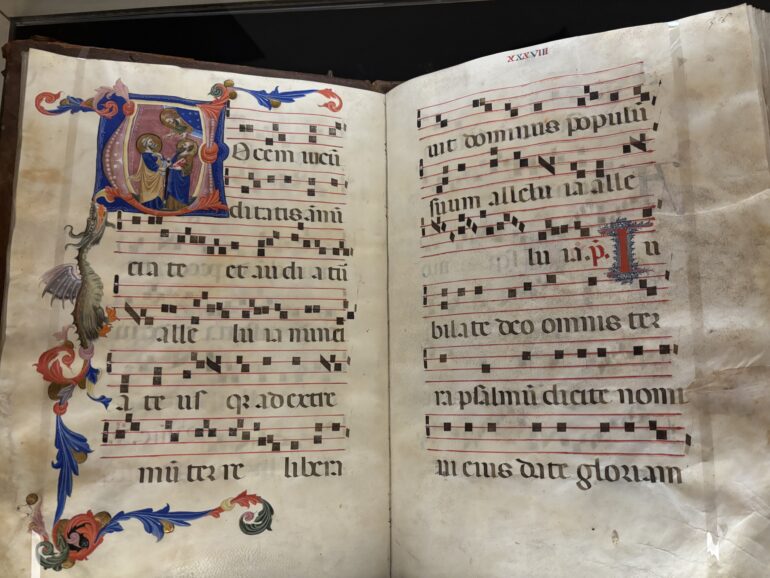 Vocem iucũ
ditatis ãnũ
cia te et au di a tũ
alle lu ia nunci
a te us q̃ ad extre
mũ ter re libera
uit dominus populũ
suum allelu ia alle
lu ia. p̃. Iu
bilate deo omnis ter
ra psalmũ dicite nomi
ni eius date gloriam